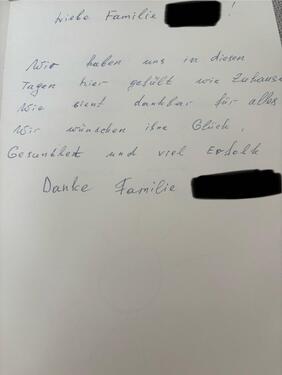 Liebe Familie !
Wir haben uns in diesen
Tagen hier gefült wie Zuhause
Wie sient dankbar für alles
Wir wünschen ihne Glück,
Gesundheit und viel Erfolk
Danke Familie